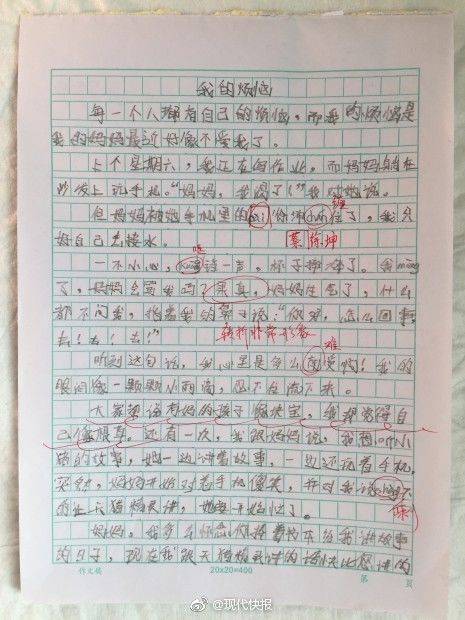 我的烦恼
每一个人都有自己的烦恼，而我的烦恼是
我的妈妈最近好像不爱我了。
上个星期六，我正在写作业，而妈妈躺在
沙发上玩手机。“妈妈，我渴了！”我对她说。
但妈妈被她手机里的 你 住了，我只
缠
好自己去接水。
蔡徐坤
一不小心， 一声，杯子摔碎了。我
了，妈妈会骂我吗？果真，妈妈生气了，什么
都不问我，指着我的鼻子说：“你呀，怎么回事，
去！去！去！”
转折非常形象
听到这句话，我心里是多么 受啊！我的
难
眼泪像一颗颗小雨滴，忍不住流下来。
大家都说有妈的孩子像块宝，我却觉得自
己像根草。还有一次，我跟妈妈说，我想听小
猪的故事，她一边讲着故事，一边还玩着手机，
突然，妈妈开始对着手机傻笑，并对我说
天猫精灵讲，她
妈妈，我多么怀念你捧着书本给我讲故事
的日子，现在我跟天猫精灵讲的话快比您讲的
作文稿
20x20=400
第 页
@现代快报